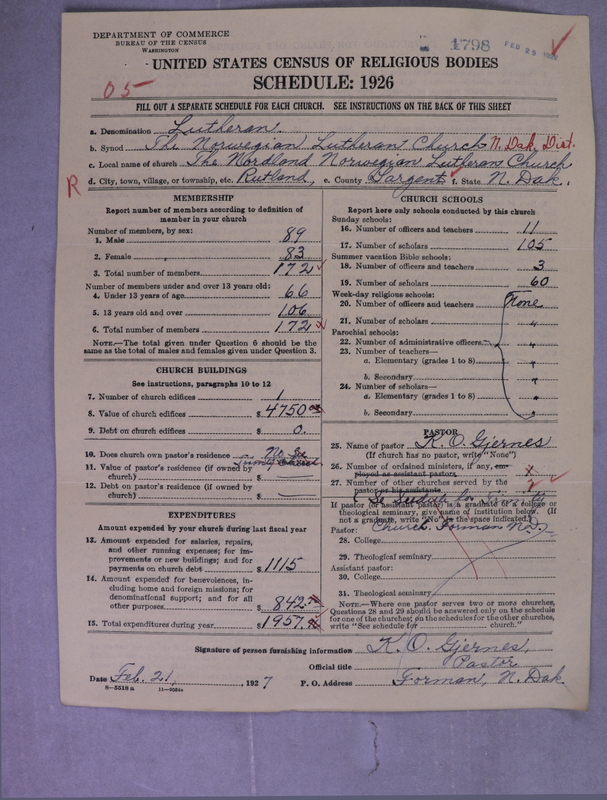 DEPARTMENT OF COMMERCE
BUREAU OF THE CENSUS
WASHINGTON
1798 FEB 25
UNITED STATES CENSUS OF RELIGIOUS BODIES
05
SCHEDULE: 1926
FILL OUT A SEPARATE SCHEDULE FOR EACH CHURCH. SEE INSTRUCTIONS ON THE BACK OF THIS SHEET
a. Denomination Lutheran.
b. Synod The Norwegian Lutheran Church N. Dak. Dist.
c. Local name of church The Nordland Norwegian Lutheran Church
R d. City, town, village, or township, etc. Rutland, e. County Sargent f. State N. Dak.
MEMBERSHIP
Report number of members according to definition of
member in your church
Number of members, by sex:
1. Male 89
2. Female 83
3. Total number of members 172
Number of members under and over 13 years old:
4. Under 13 years of age 66
5. 13 years old and over 106
6. Total number of members 172
NOTE.—The total given under Question 6 should be the
same as the total of males and females given under Question 3.
CHURCH BUILDINGS
See instructions, paragraphs 10 to 12
7. Number of church edifices 1
8. Value of church edifices $ 4750
9. Debt on church edifices $ 0.
10. Does church own pastor's residence No
11. Value of pastor's residence (if owned by
church) $
12. Debt on pastor's residence (if owned by
church) $ —
EXPENDITURES
Amount expended by your church during last fiscal year
13. Amount expended for salaries, repairs,
and other running expenses; for im-
provements or new buildings; and for
payments on church debt $ 1115
14. Amount expended for benevolences, in-
cluding home and foreign missions; for
denominational support; and for all
other purposes $ 842
15. Total expenditures during year $ 1957
CHURCH SCHOOLS
Report here only schools conducted by this church
Sunday schools:
16. Number of officers and teachers 11
17. Number of scholars 105
Summer vacation Bible schools:
18. Number of officers and teachers 3
19. Number of scholars 60
Week-day religious schools:
20. Number of officers and teachers None
21. Number of scholars "
Parochial schools:
22. Number of administrative officers "
23. Number of teachers—
a. Elementary (grades 1 to 8) "
b. Secondary "
24. Number of scholars—
a. Elementary (grades 1 to 8) "
b. Secondary "
PASTOR
25. Name of pastor K. O. Gjernes
(If church has no pastor, write "None")
26. Number of ordained ministers, if any, em-
ployed as assistant pastors x
27. Number of other churches served by the
pastor or his assistants 2
If pastor (or assistant pastor) is a graduate of a college or
theological seminary, give name of institution below. (If
not a graduate, write "No" in the space indicated.)
Pastor: Church. Forman N.D.
28. College
29. Theological seminary
Assistant pastor:
30. College
31. Theological seminary
NOTE.—Where one pastor serves two or more churches,
Questions 28 and 29 should be answered only on the schedule
for one of the churches; on the schedules for the other churches,
write "See schedule for church."
Signature of person furnishing information K. O. Gjernes,
Official title Pastor
Date Feb. 21, 1927 P. O. Address Forman, N. Dak
8—5518 a 11—9034a